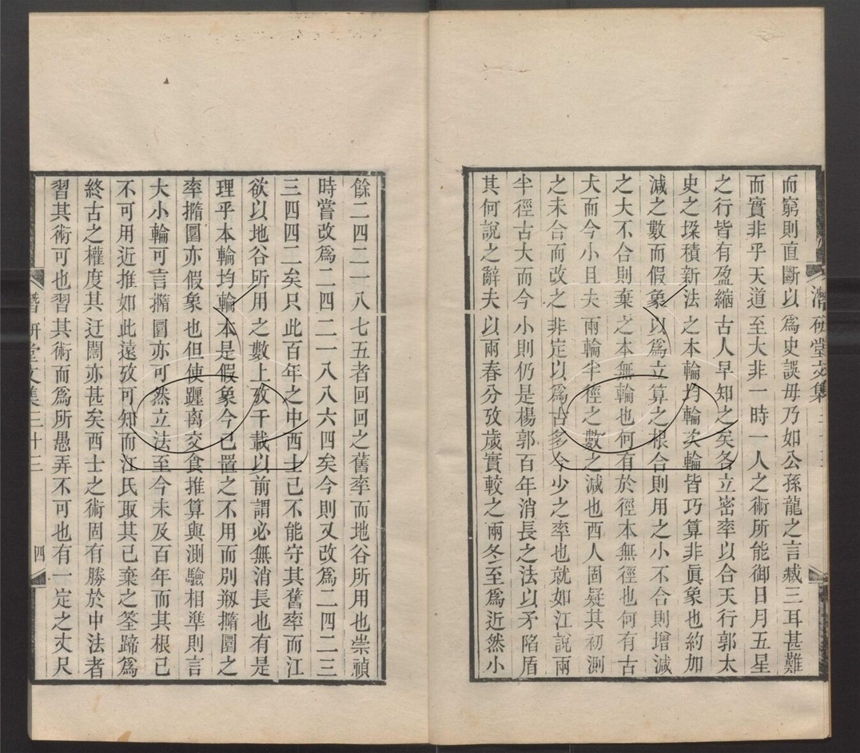 而窮則直斷以爲史誤毋乃如公孫龍之言臧三耳甚難
而實非乎天道至大非一時一人之術所能御日月五星
之行皆有盈縮古人早知之矣各立密率以合天行郭太
史之垜積新法之本輪均輪次輪皆巧算非眞象也約加
減之數而假象以爲立算之根合則用之小不合則增減
之大不合則棄之本無輪也何有於徑本無徑也何有古
大而今小且夫兩輪半徑之數之減也西人固疑其初測
之未合而改之非定以爲古多今少之率也就如江說兩
半徑古大而今小則仍是楊郭百年消長之法以矛陷盾
其何說之辭夫以兩春分攷歲實較之兩冬至爲近然小
潛研堂文集
餘二四二一八七五者回回之舊率而地谷所用也崇禎
時嘗改爲二四二一八八六四矣今則又改爲二四二三
三四四二矣只此百年之中西士已不能守其舊率而江
欲以地谷所用之數上攷千載以前謂必無消長也有是
理乎本輪均輪本是假象今已置之不用而別剏撱圜之
率撱圜亦假象也但使躔离交食推算與測驗相準則言
大小輪可言撱圜亦可然立法至今未及百年而其根已
不可用近推如此遠攷可知而江氏取其已棄之筌蹄爲
終古之權度其迂闊亦甚矣西士之術固有勝於中法者
習其術可也習其術而爲所愚弄不可也有一定之丈尺
潛研堂文集三十三
四